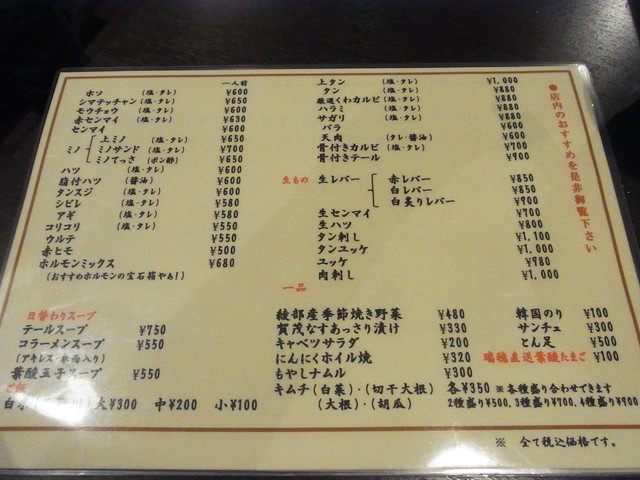 一人前
ホソ (塩・タレ) ¥600
シマテッチャン(塩・タレ) ¥650
モウチョウ (塩・タレ) ¥600
赤センマイ (塩・タレ) ¥630
センマイ ¥600
ミノ
上ミノ (塩・タレ) ¥650
ミノサンド (塩・タレ) ¥700
ミノてっさ (ポン酢) ¥650
ハツ (塩・タレ) ¥600
脂付ハツ (醤油) ¥600
タンスジ (塩・タレ) ¥600
シビレ (塩・タレ) ¥580
アギ (塩・タレ) ¥580
コリコリ (塩・タレ) ¥550
ウルテ ¥550
赤ヒモ ¥500
ホルモンミックス ¥680
(おすすめホルモンの宝石箱やぁ!)
日替わりスープ
テールスープ ¥750
コラーメンスープ ¥550
(アキレス・春雨入り)
葉酸玉子スープ ¥550
ご飯
大¥300 中¥200 小¥100
上タン (塩・タレ) ¥1,000
タン (塩・タレ) ¥880
厳選くわカルビ (塩・タレ) ¥880
ハラミ (塩・タレ) ¥880
サガリ (塩・タレ) ¥880
バラ ¥600
天肉 (タレ・醤油) ¥600
骨付きカルビ (塩・タレ) ¥700
骨付きテール ¥900
生もの
生レバー
赤レバー ¥850
白レバー ¥850
白炙りレバー ¥900
生センマイ ¥700
生ハツ ¥800
タン刺し ¥1,100
タンユッケ ¥1,000
ユッケ ¥980
肉刺し ¥1,000
一品
綾部産季節焼き野菜 ¥480
賀茂なすあっさり漬け ¥330
キャベツサラダ ¥200
にんにくホイル焼 ¥320
もやしナムル ¥300
キムチ(白菜)・(切干大根) 各¥350 ※各種盛り合わせできます
(大根)・(胡瓜) 2種盛り¥500、3種盛り¥700、4種盛り¥900
韓国のり ¥100
サンチュ ¥300
とん足 ¥500
瑞穂直送葉酸たまご ¥100
●店内のおすすめを是非御覧下さい
※ 全て税込価格です。